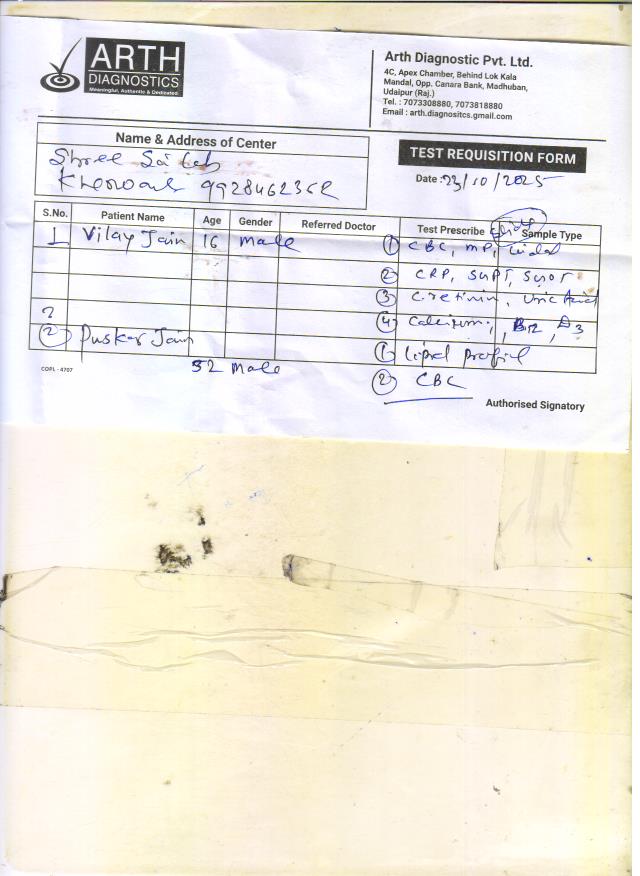 ARTH
DIAGNOSTICS
Meaningful, Authentic & Dedicated
Arth Diagnostic Pvt. Ltd.
4C, Apex Chamber, Behind Lok Kala
Mandal, Opp. Canara Bank, Madhuban,
Udaipur (Raj.)
Tel. : 7073308880, 7073818880
Email : arth.diagnositcs.gmail.com
Name & Address of Center
Shree Sai Lab
TEST REQUISITION FORM
Date : 23/10/2025
S.No. Patient Name Age Gender Referred Doctor Test Prescribe Sample Type
1 Vilay Jain 16 male ① CBC, MP, widal
② CRP, SGPT, SGOT
③ Uric Acid
④ Calcium, B12, D3
2
② Puskar Jain ① lipid profil
52 Male ② CBC
COPL - 4707
Authorised Signatory